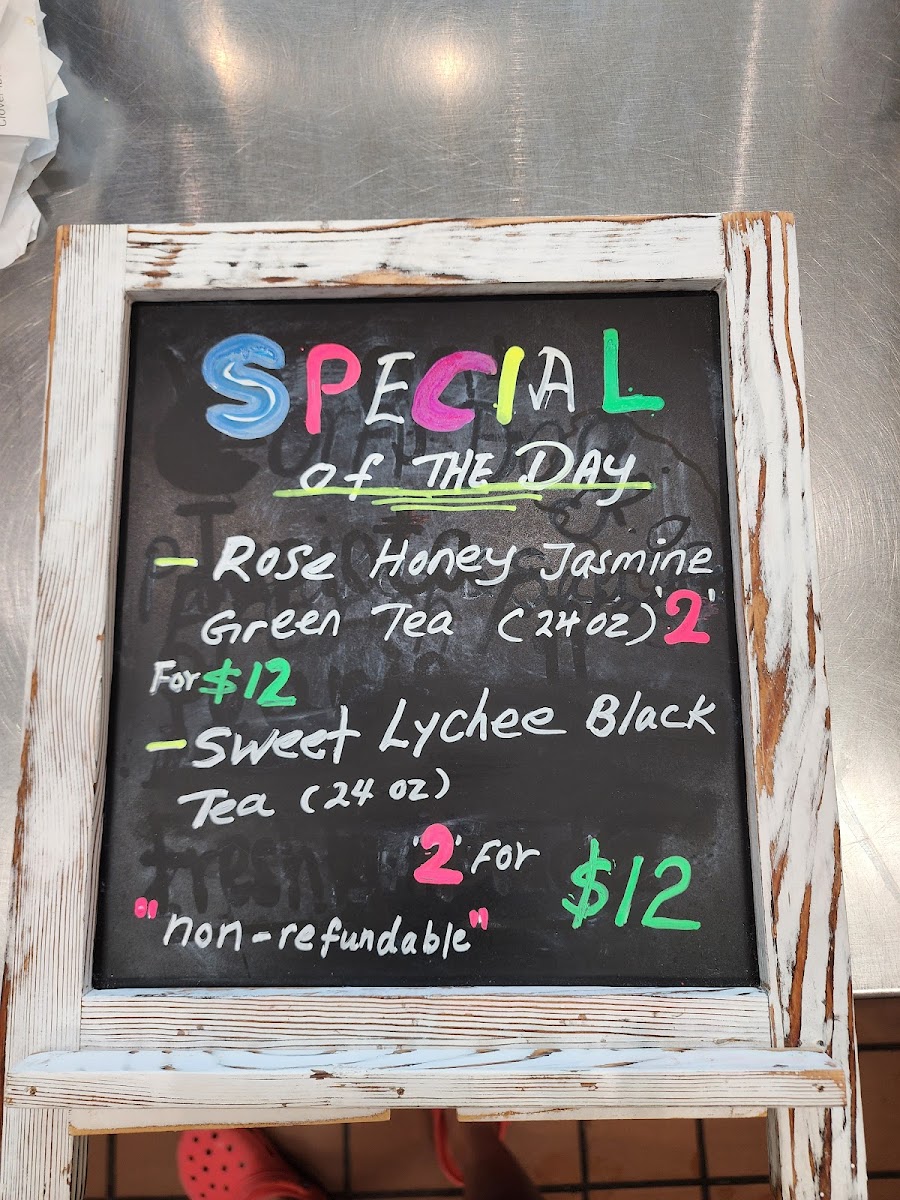 SPECIAL
of THE DAY
- Rose Honey Jasmine
Green Tea (24 oz) '2'
For $12
- Sweet Lychee Black
Tea (24 oz)
'2' For $12
"non-refundable"